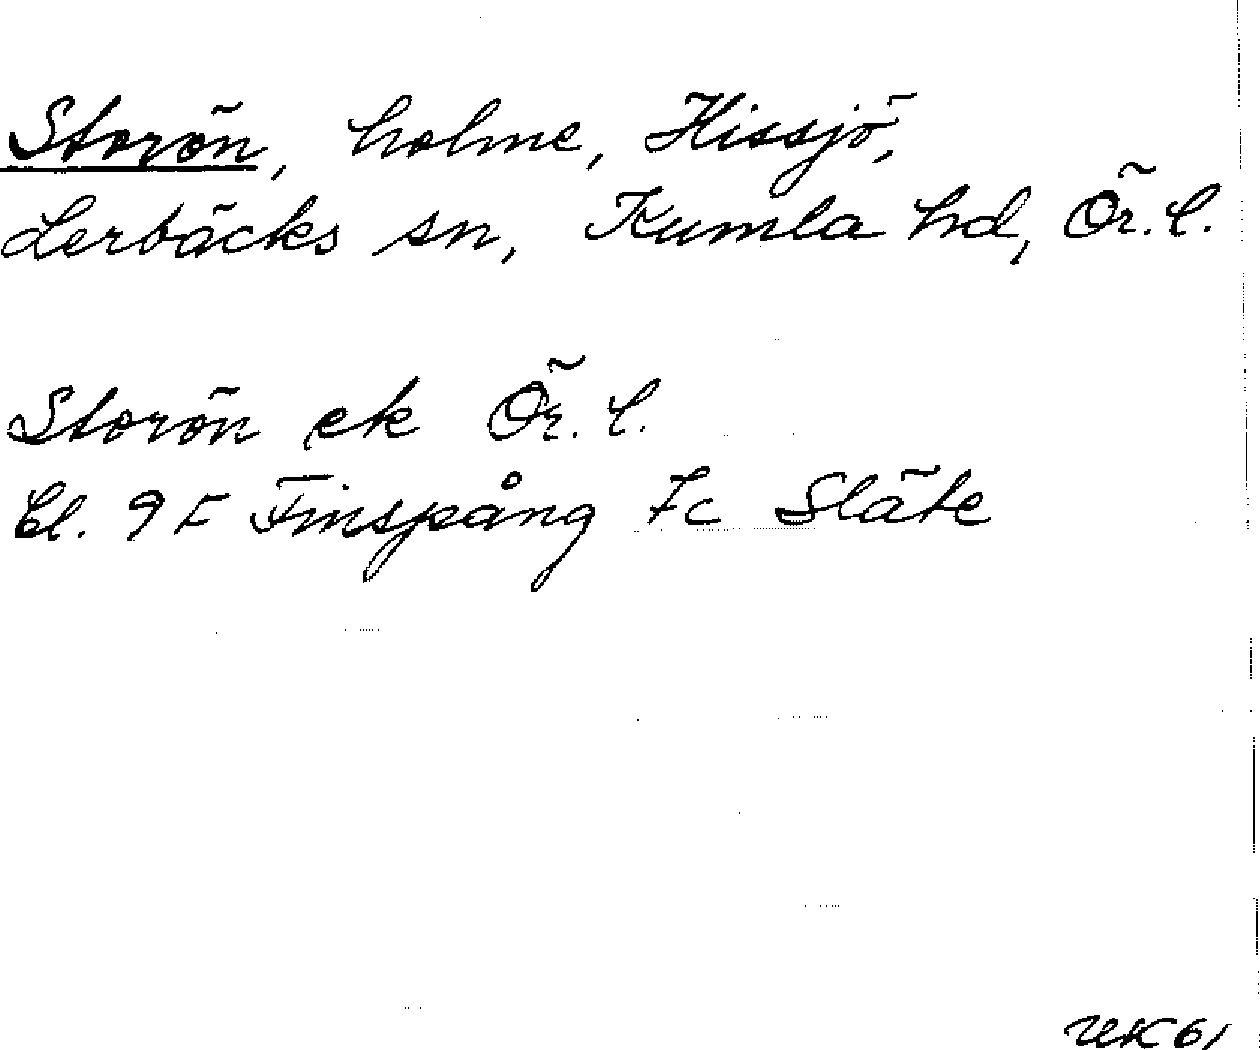 Storön, holme, Hissjö,
Lerbäcks sn, Kumla hd, Ör. l.
Storön ek Ör. l.
Bl. 9 F Finspång 7c Släte
UK 61